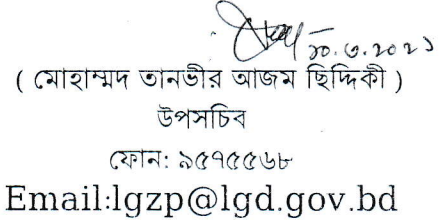 ১০.৩.২০২১
( মোহাম্মদ তানভীর আজম ছিদ্দিকী )
উপসচিব
ফোন: ৯৫৭৫৫৬৮
Email:lgzp@lgd.gov.bd